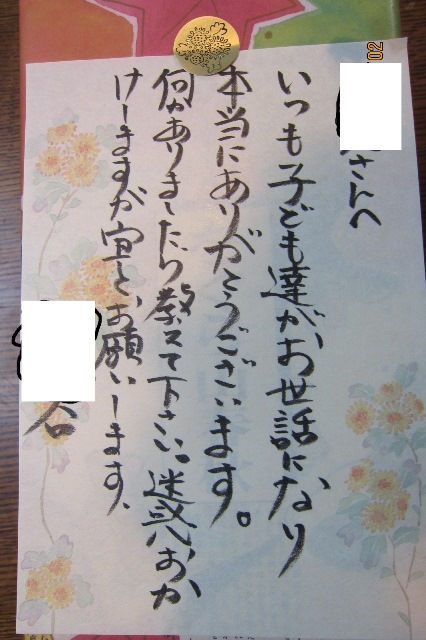 さんへ
いつも子ども達が、お世話になり
本当にありがとうございます。
何かありましたら教えて下さい。迷惑おか
けしますが宜しくお願いします。
谷
02